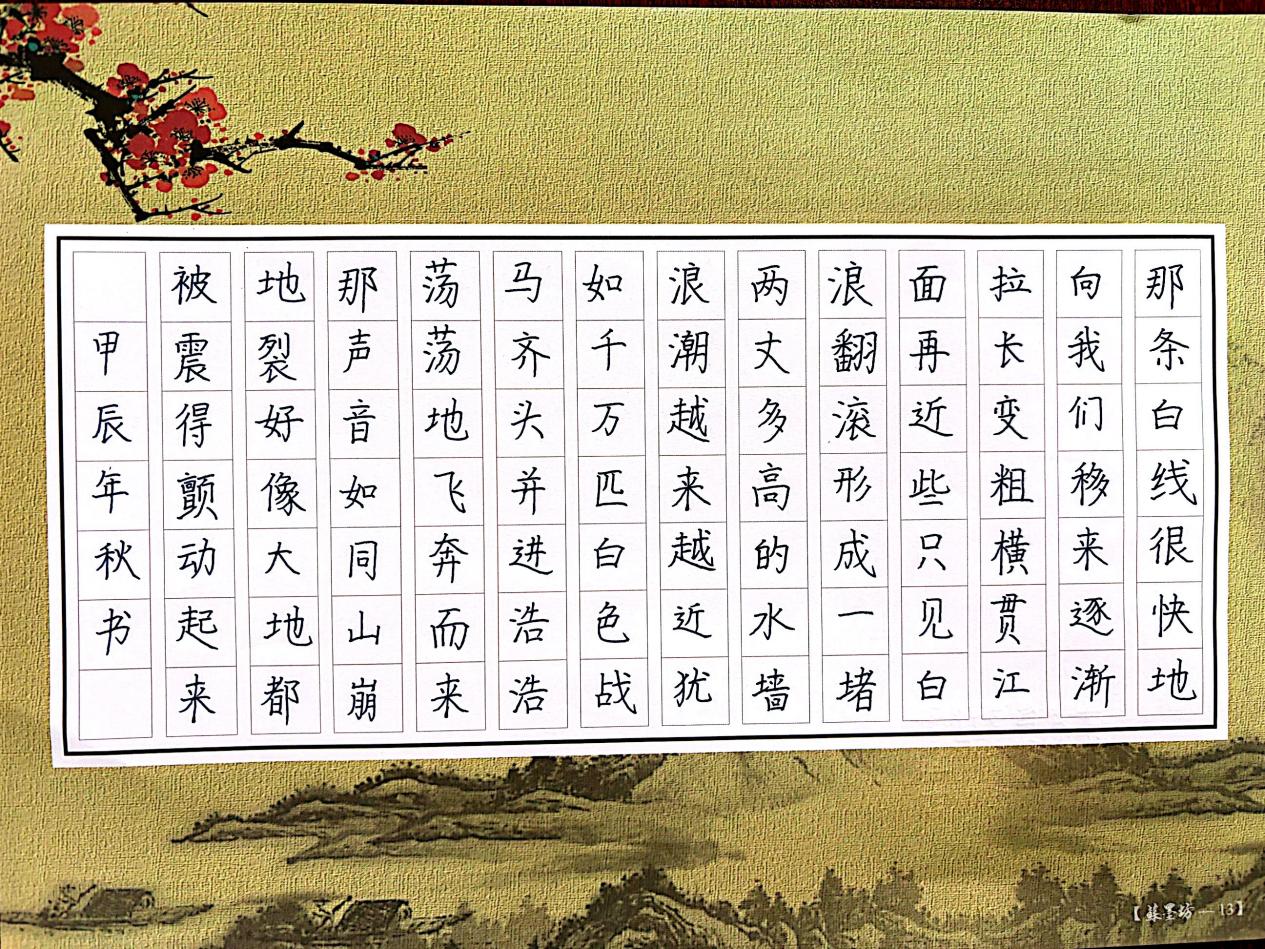 那条白线很快地
向我们移来逐渐
拉长变粗横贯江
面再近些只见白
浪翻滚形成一堵
两丈多高的水墙
浪潮越来越近犹
如千万匹白色战
马齐头并进浩浩
荡荡地飞奔而来
那声音如同山崩
地裂好像大地都
被震得颤动起来
甲辰年秋书
【蘇墨坊—13】